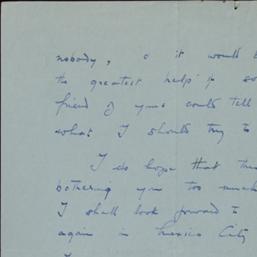 nobody, & it would b
the greatest help if so
friend of yours could tell
what I should try to
I do hope that this
bothering you too much
I shall look forward to
again in Mexico City